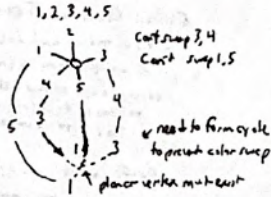 1, 2, 3, 4, 5
2
1
3
5
4
4
3
5
1
3
1
Can't swap 3,4
Can't swap 1,5
need to form cycle
to prevent color swap
planar vertex must exist